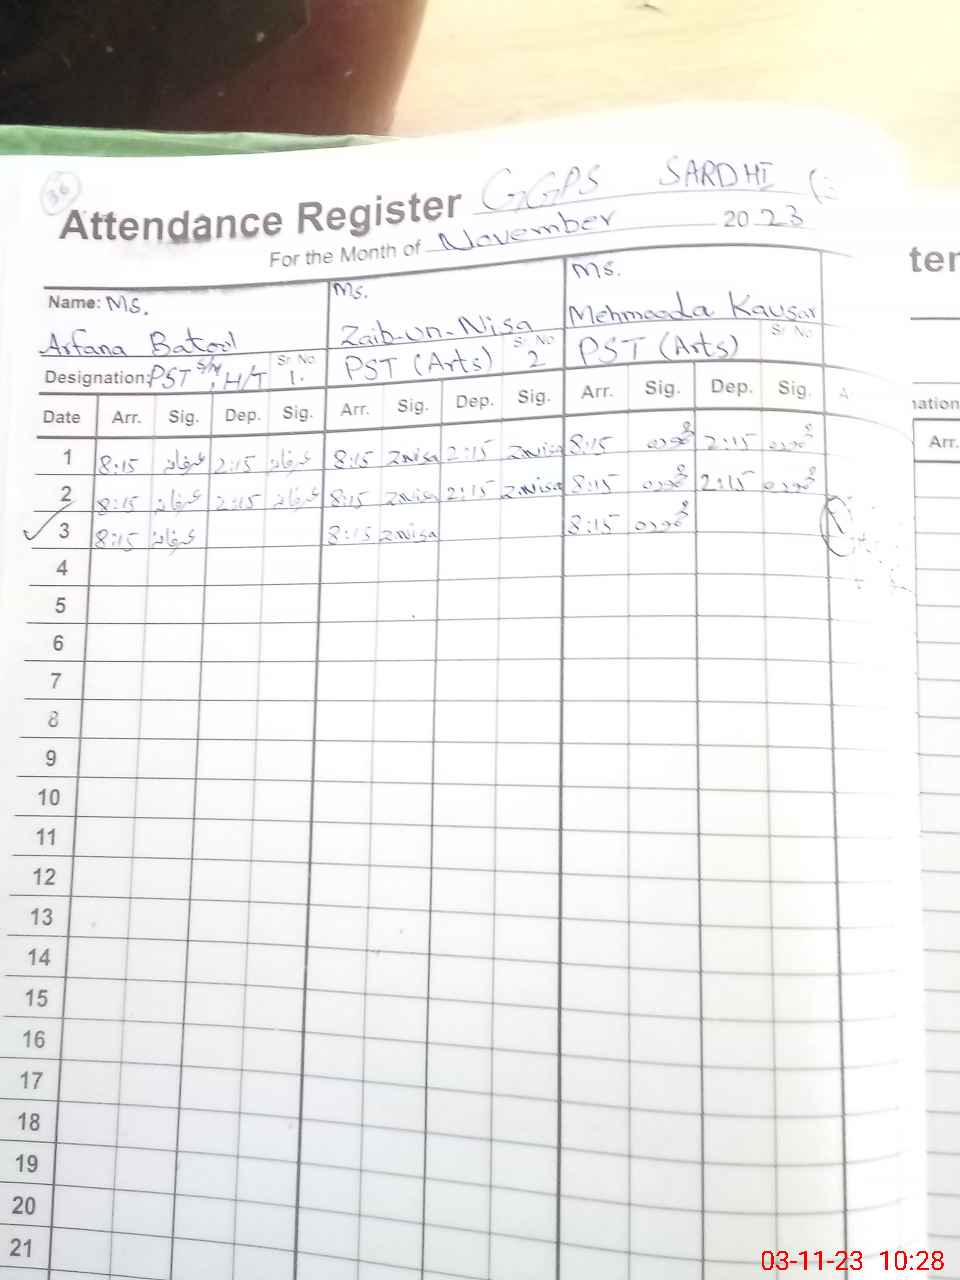 36
Attendance Register GGPS SARDHI
For the Month of November 2023
Name: Ms. Arfana Batool Ms. Zaib-un-Nisa Ms. Mehmooda Kausar
Designation: PST S/M, H/T Sr No 1. PST (Arts) Sr No 2 PST (Arts) Sr No
Date Arr. Sig. Dep. Sig. Arr. Sig. Dep. Sig. Arr. Sig. Dep. Sig. A
1 8:15 عرفانہ 2:15 عرفانہ 8:15 ZNisa 2:15 ZNisa 8:15 محمودہ 2:15 محمودہ
2 8:15 عرفانہ 2:15 عرفانہ 8:15 ZNisa 2:15 ZNisa 8:15 محمودہ 2:15 محمودہ
3 8:15 عرفانہ 8:15 ZNisa 8:15 محمودہ
4
5
6
7
8
9
10
11
12
13
14
15
16
17
18
19
20
21
ter
nation
Arr.
03-11-23 10:28